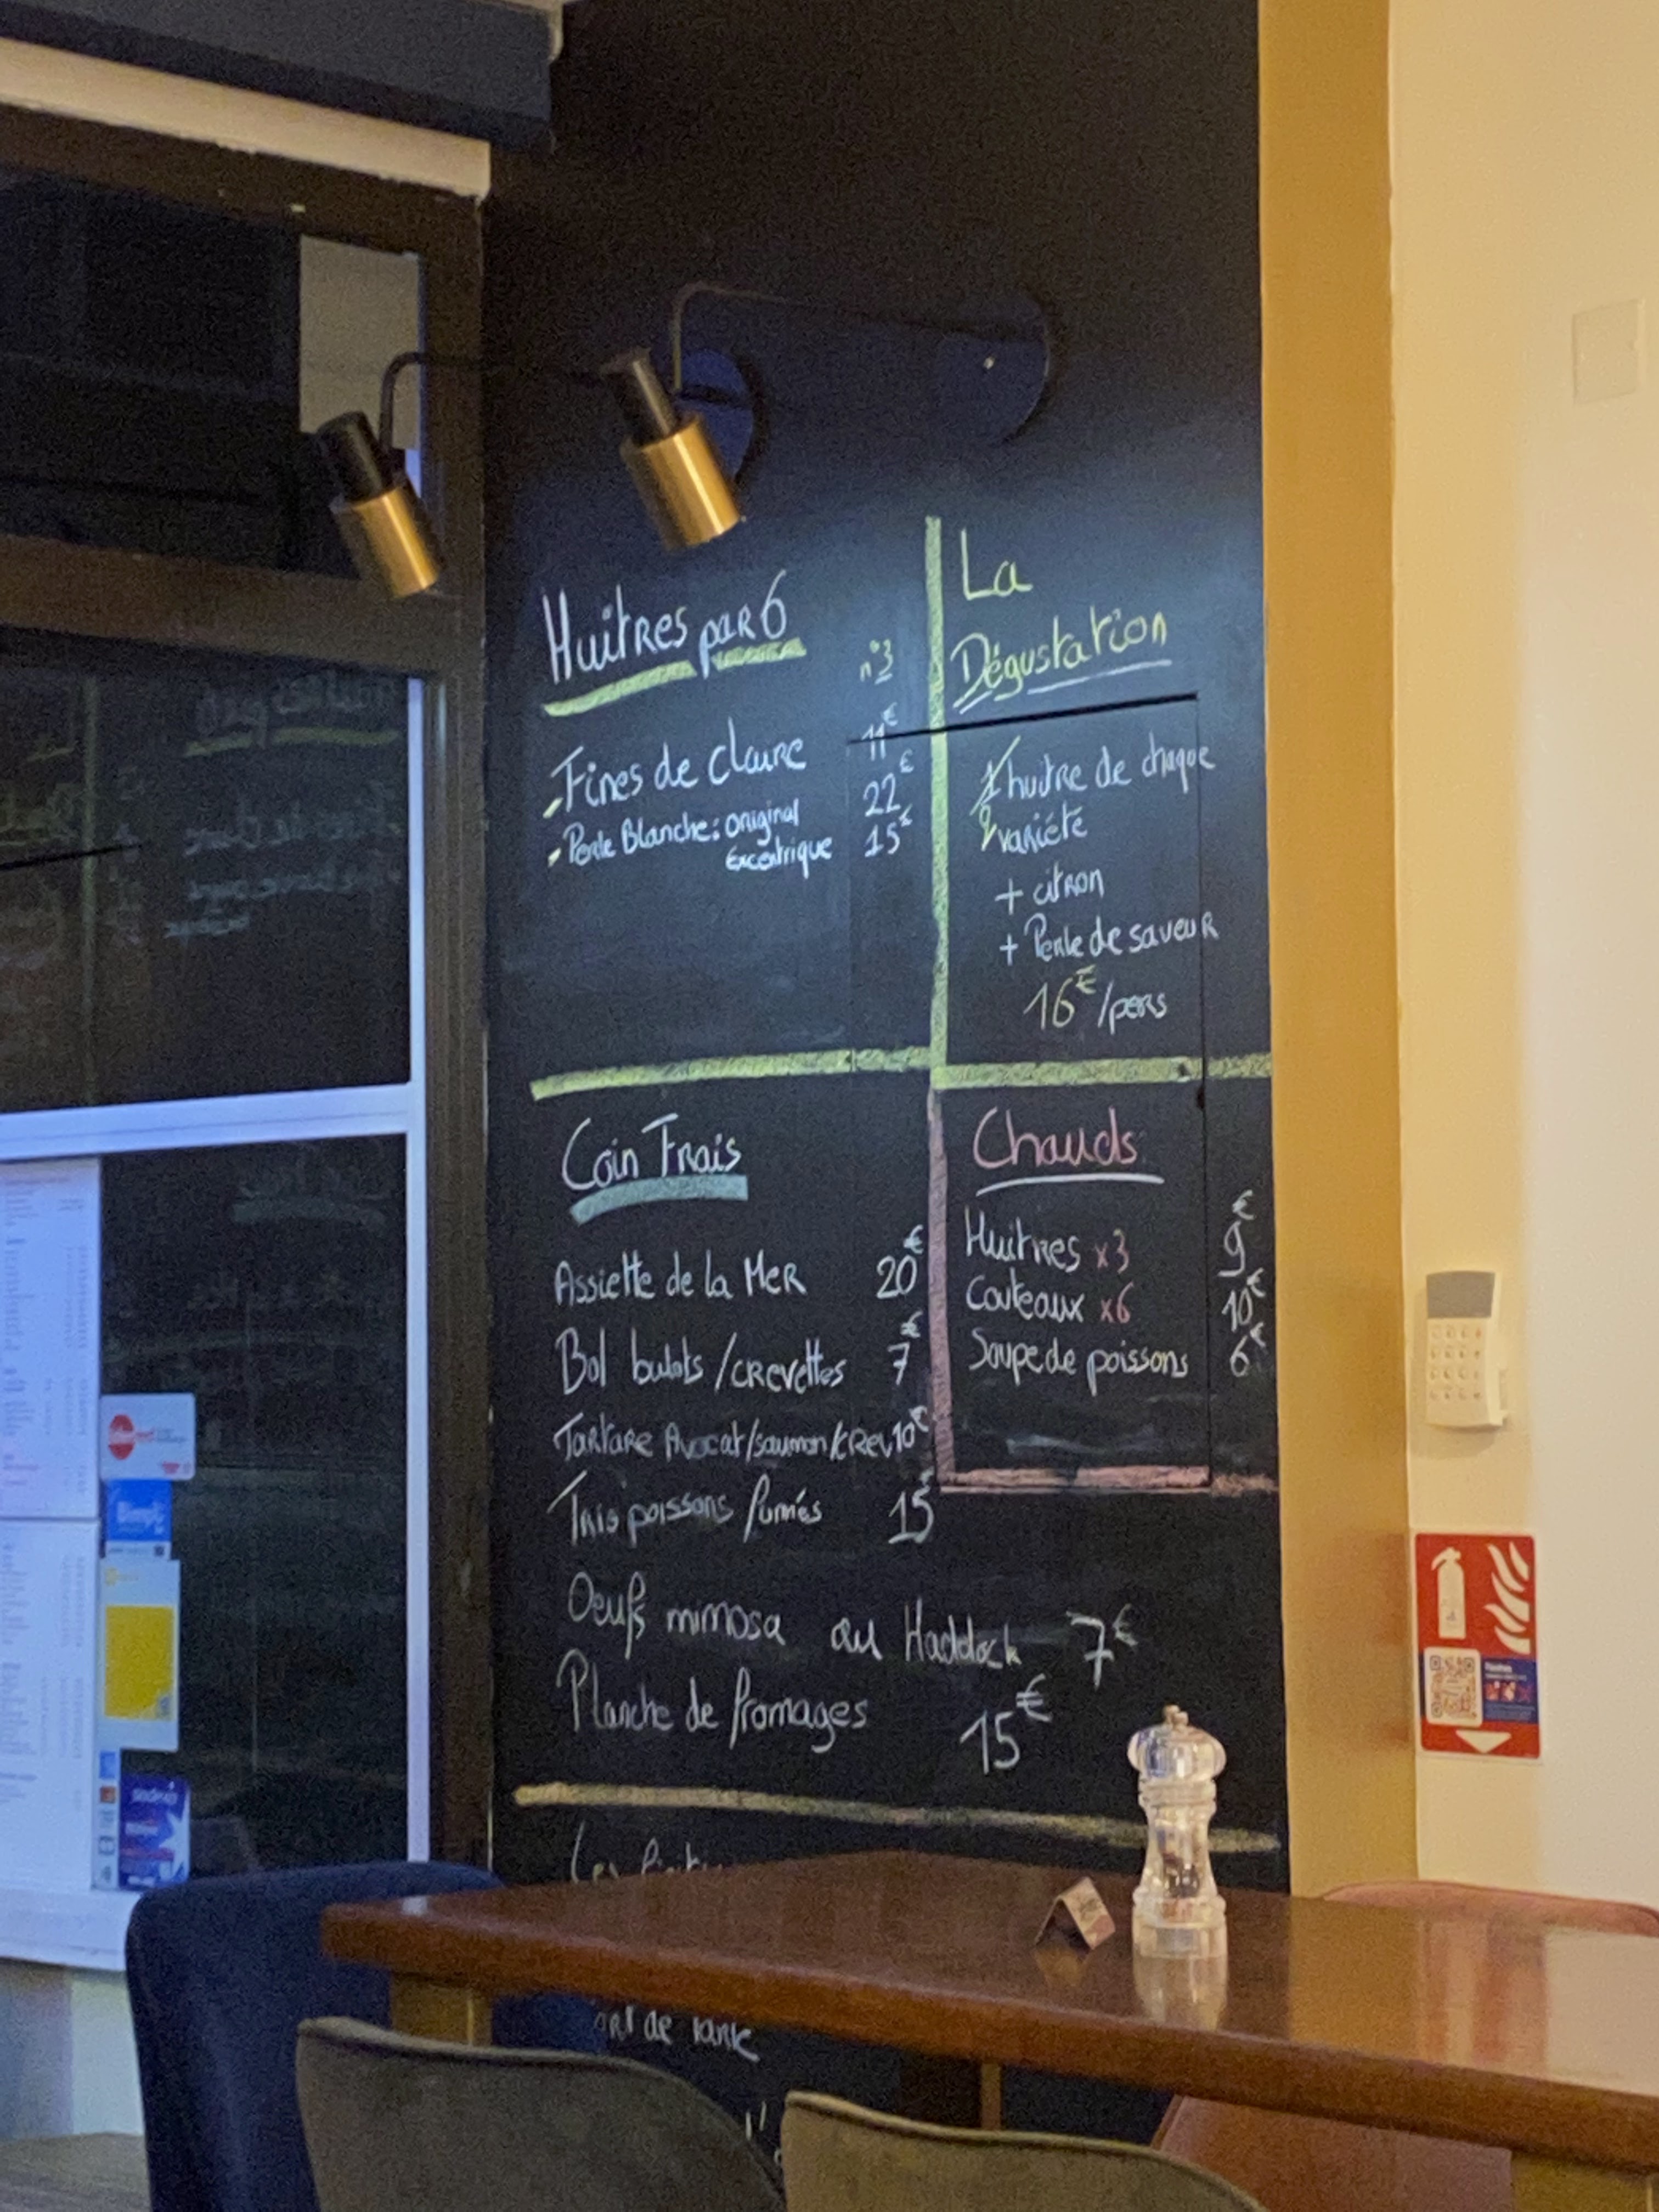 Huitres par 6
n°3
Fines de Claire 11€
Perle Blanche: original 22€
Excentrique 15€
La
Dégustation
huitre de chaque
2 variété
+ citron
+ Perle de saveur
16€/pers
Coin Frais
Assiette de la Mer 20€
Bol bulots/crevettes 7€
Tartare Avocat/saumon/crev 10€
Trio poissons fumés 15€
Oeufs mimosa au Haddock 7€
Planche de fromages 15€
Chauds
Huitres x3 9€
Couteaux x6 10€
Soupe de poissons 6€
Les
de
sodexo